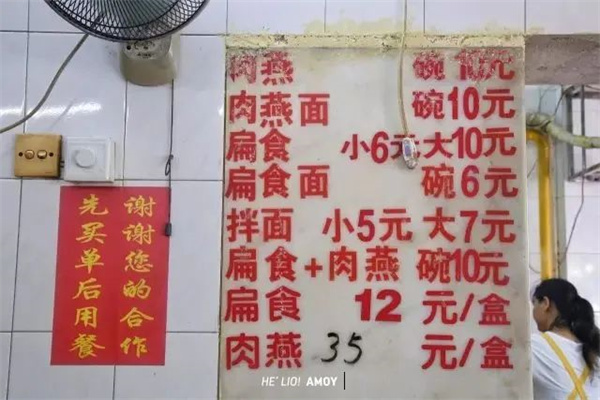 肉燕 碗10元
肉燕面 碗10元
扁食 小6元大10元
扁食面 碗6元
拌面 小5元 大7元
扁食+肉燕 碗10元
扁食 12 元/盒
肉燕 35 元/盒
谢谢您的合作
先买单后用餐
HE' LIO! AMOY